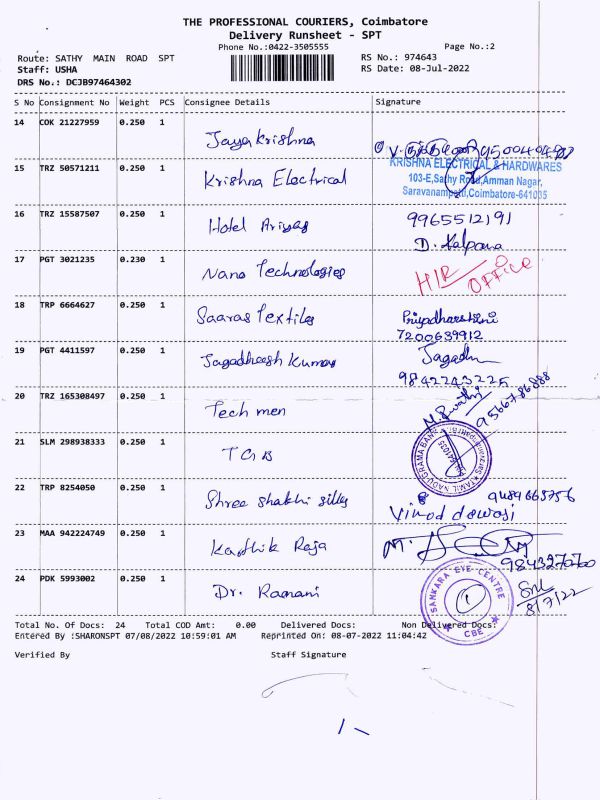 THE PROFESSIONAL COURIERS, Coimbatore
Delivery Runsheet - SPT
Phone No.:0422-3505555
Page No.:2
Route: SATHY MAIN ROAD SPT
RS No.: 974643
Staff: USHA
RS Date: 08-Jul-2022
DRS No.: DCJB97464302
S No Consignment No Weight PCS Consignee Details Signature
14 COK 21227959 0.250 1 Jaya Krishna
15 TRZ 50571211 0.250 1 Krishna Electrical
KRISHNA ELECTRICAL & HARDWARES
103-E, Sathy Road, Amman Nagar,
Saravanampatti, Coimbatore-641035
16 TRZ 15587507 0.250 1 Hotel Ariyas 9965512191
D. Kalpana
17 PGT 3021235 0.230 1 Nano Technologies H/R OFFICE
18 TRP 6664627 0.250 1 Saaras Textiles Priyadharshini
7200639912
19 PGT 4411597 0.250 1 Jagadheesh Kumar Jagadh
9842243225
20 TRZ 165308497 0.250 1 Tech men M. Swathi 9566786888
21 SLM 298938333 0.250 1 TGB
TAMIL NADU GRAMA BANK
22 TRP 8254050 0.250 1 Shree Shakthi silks 9489665756
Vinod dewasi
23 MAA 942224749 0.250 1 Karthik Raja
24 PDK 5993002 0.250 1 Dr. Ramani
SANKARA EYE CENTRE
CBE
8/7/22
Total No. Of Docs: 24 Total COD Amt: 0.00 Delivered Docs: Non Delivered Docs:
Entered By :SHARONSPT 07/08/2022 10:59:01 AM Reprinted On: 08-07-2022 11:04:42
Verified By Staff Signature